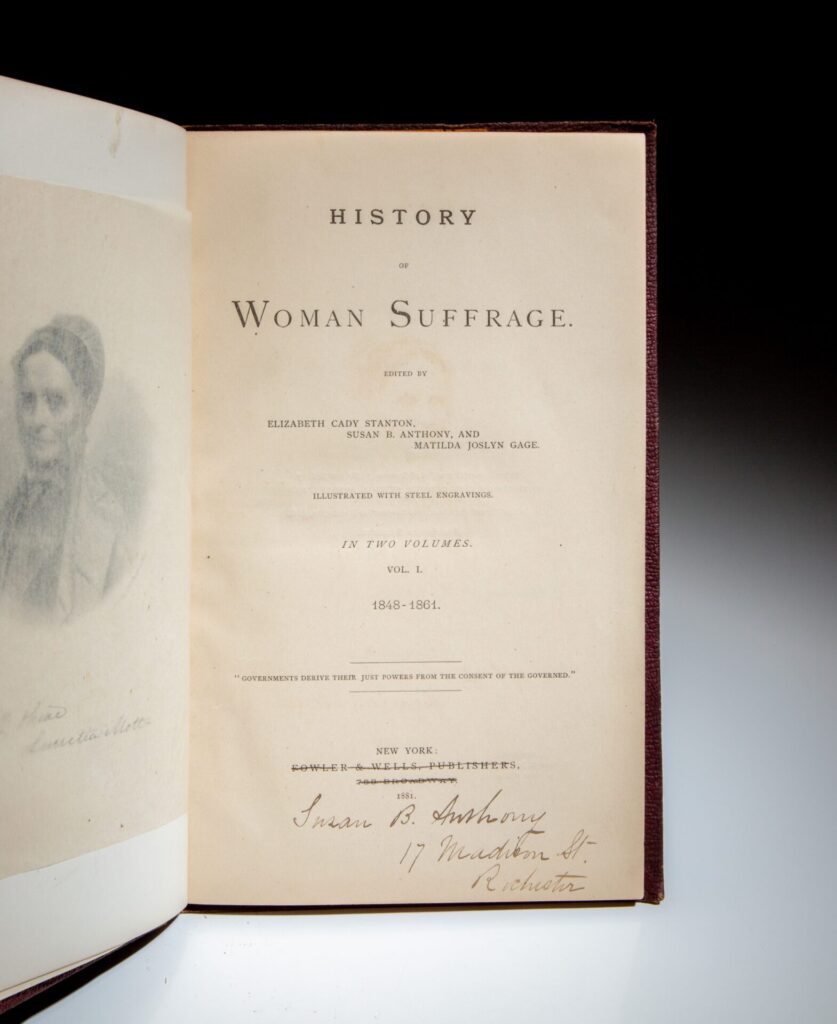 HISTORY
OF
WOMAN SUFFRAGE.
EDITED BY
ELIZABETH CADY STANTON,
SUSAN B. ANTHONY, AND
MATILDA JOSLYN GAGE.
ILLUSTRATED WITH STEEL ENGRAVINGS.
IN TWO VOLUMES.
VOL. I.
1848-1861.
"GOVERNMENTS DERIVE THEIR JUST POWERS FROM THE CONSENT OF THE GOVERNED."
NEW YORK:
FOWLER & WELLS, PUBLISHERS,
753 BROADWAY.
1881.
Susan B. Anthony
17 Madison St.
Rochester
thine
Lucretia Mott